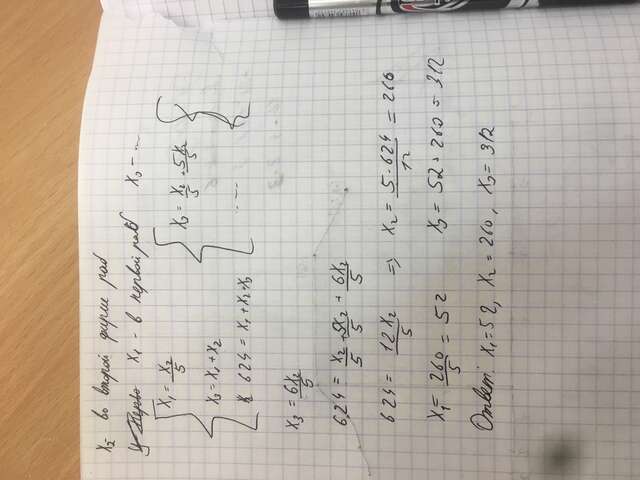 x₂ - во второй фирме раб
у Перво x₁ - в первой раб x₃ - ...
x₁ = x₂/5
x₃ = x₁ + x₂
624 = x₁ + x₂ + x₃
x₃ = x₂/5 + 5x₂/5
....
x₃ = 6x₂/5
624 = x₂/5 + 5x₂/5 + 6x₂/5
624 = 12x₂/5 => x₂ = 5·624/12 = 260
x₁ = 260/5 = 52 x₃ = 52 + 260 = 312
Ответ: x₁ = 52, x₂ = 260, x₃ = 312